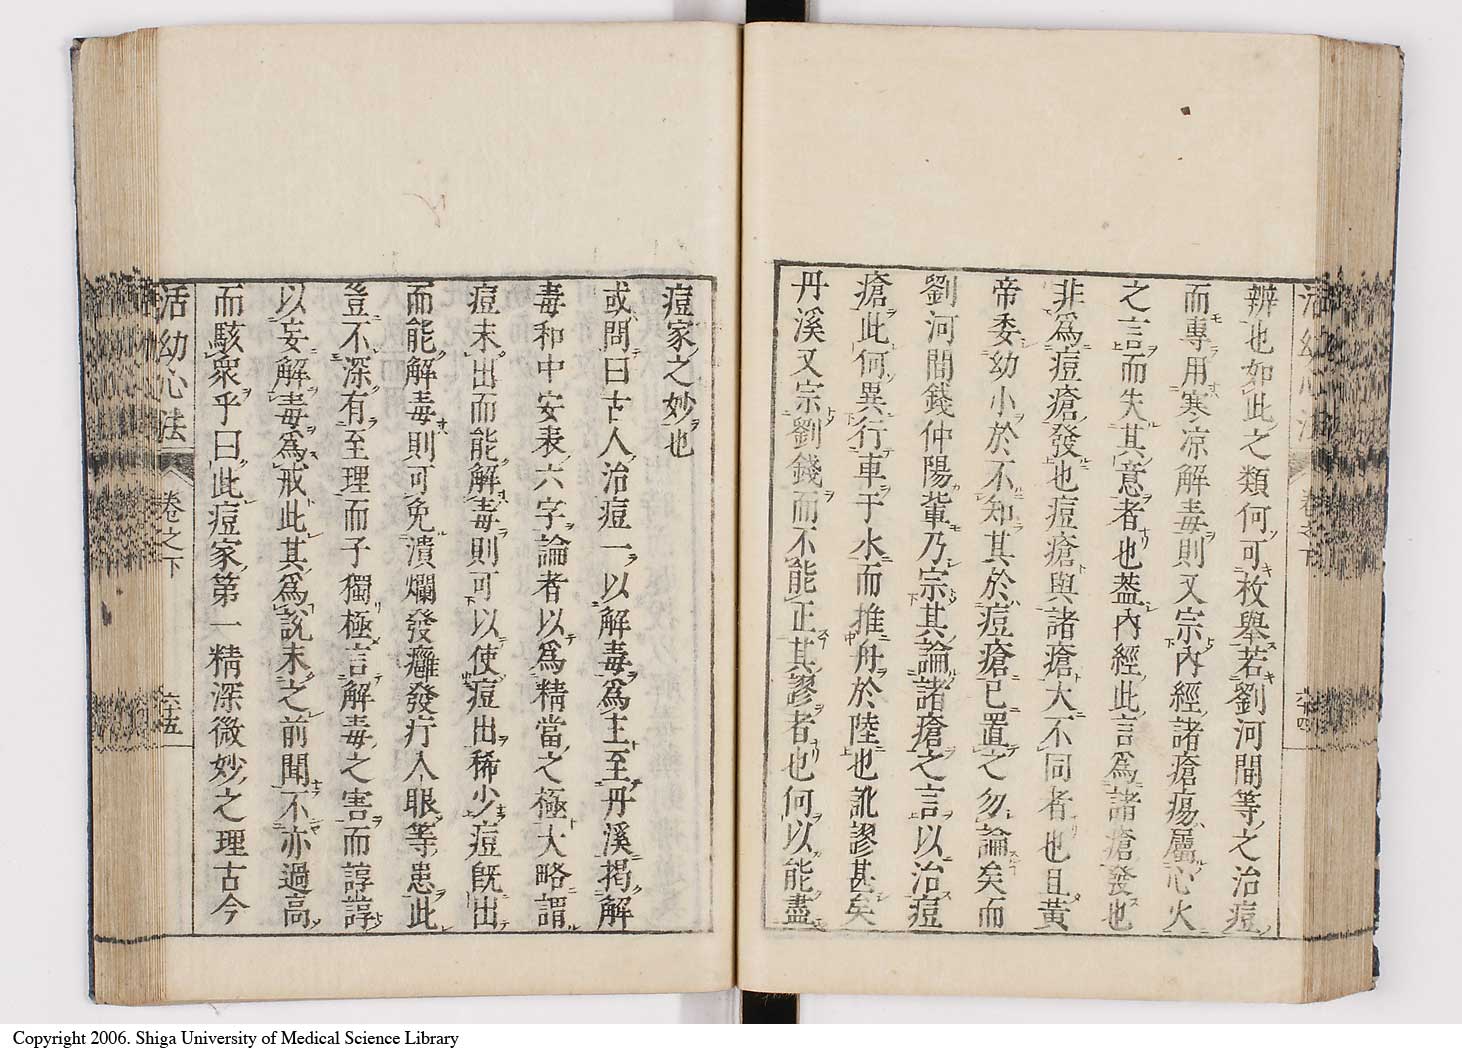 辨也如此之類何可枚舉若劉河間等之治痘
而專用寒凉解毒則又宗內經諸瘡瘍屬心火
之言而失其意者也盖內經此言爲諸瘡發也
非爲痘瘡發也痘瘡與諸瘡大不同者也且黃
帝委幼小於不知其於痘瘡已置之勿論矣而
劉河間錢仲陽軰乃宗其論諸瘡之言以治痘
瘡此何異行車于水而推舟於陸也訛謬甚矣
丹溪又宗劉錢而不能正其謬者也何以能盡
痘家之妙也
或問曰古人治痘一以解毒爲主至丹溪揭解
毒和中安表六字論者以爲精當之極大略謂
痘未出而能解毒則可以使痘出稀少痘既出
而能解毒則可免潰爛發癰發疔入眼等患此
豈不深有至理而子獨極言解毒之害而諄諄
以妄解毒爲戒此其爲說未之前聞不亦過高
而駭衆乎曰此痘家第一精深微妙之理古今
活幼心法
卷之下
六十五
活幼心法
卷之下
六十四
Copyright 2006. Shiga University of Medical Science Library